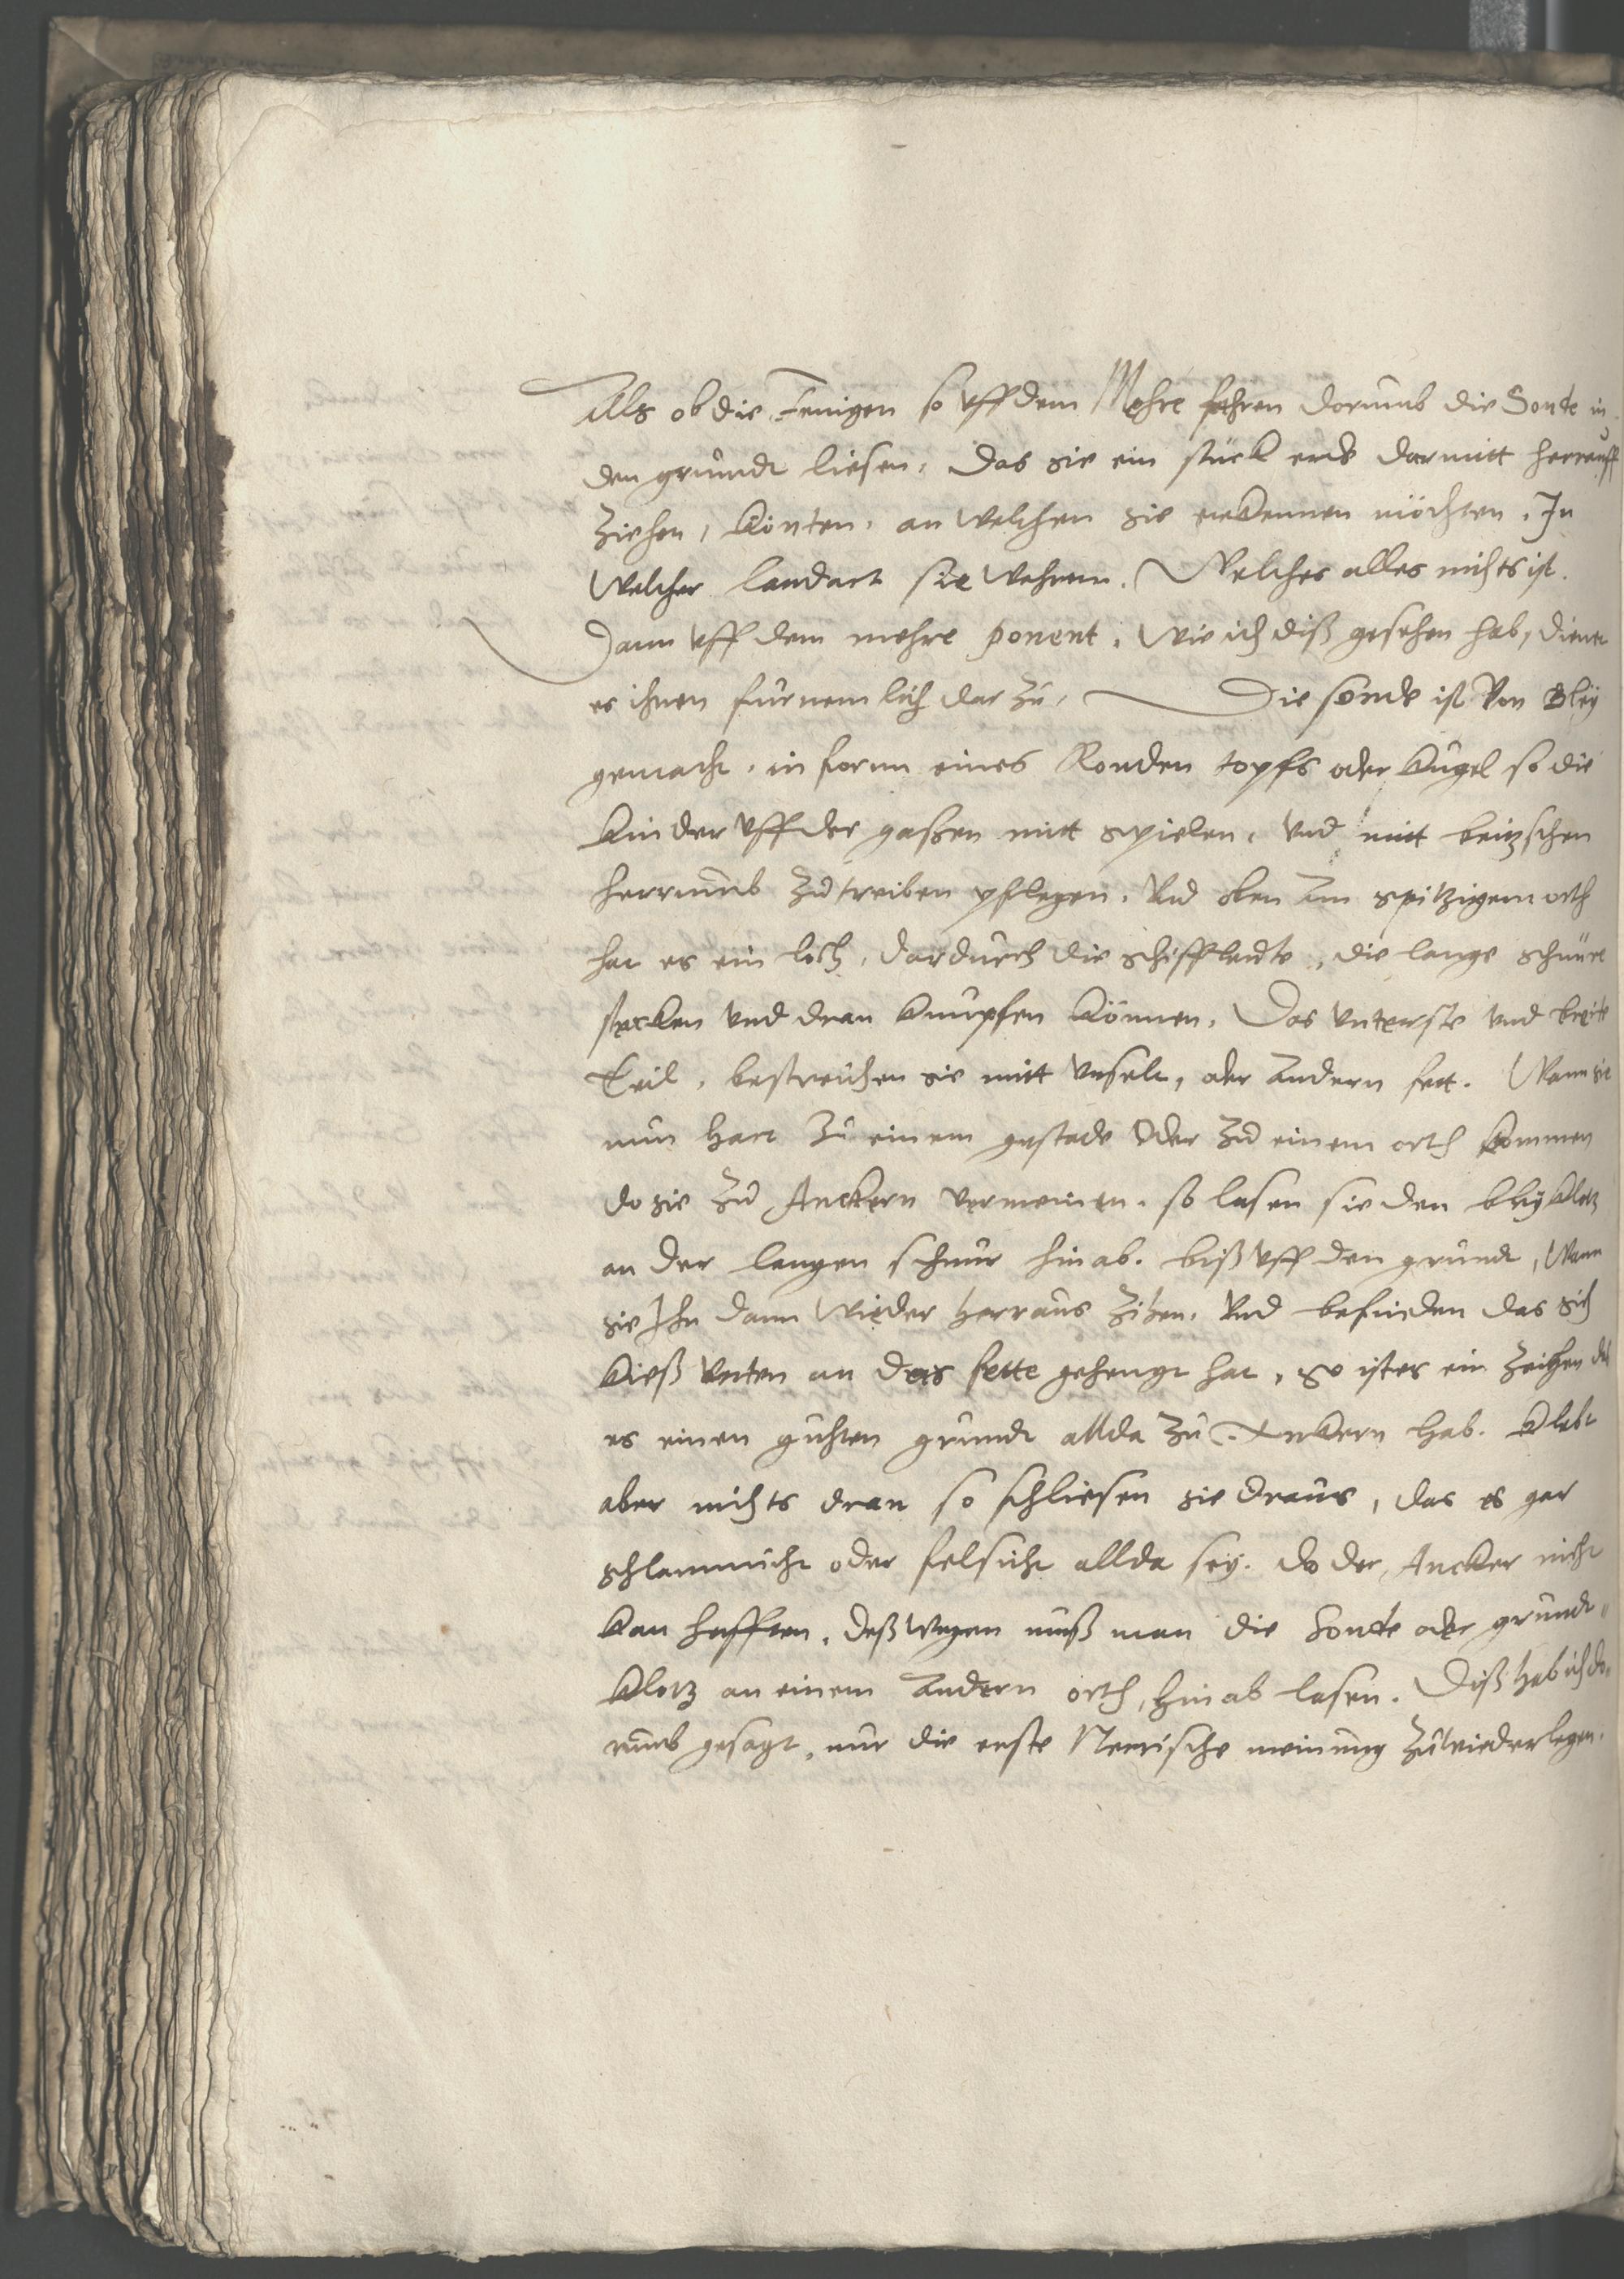 Als ob die Jenigen so vff dem Mehre fahren dorumb die Sonde in
den grundt liesen, das sie ein stück erde darmitt herrauff
Ziehen, könten, an welchen sie erkennen möchten, In
welcher landart sie wehren. Welches alles nichts ist.
Dann vff dem mehre ponent, wie ich diß gesehen hab, dienet
es ihnen fürnemlich darzu, Die sonde ist von Bley
gemacht, in form eines Ronden topfs oder kugel so die
kinder vff der gaßen mitt spielen, vnd mitt beitzschen
herrumb zu treiben pflegen. Vnd oben am spitzigem orth
hat es ein loch, dardurch die schiffleudte, die lange schnüre
stecken vnd dran knüpfen können. Das vnterste vnd breite
Teil, bestreichen sie mitt vnselt, oder andern fett. Wann sie
nun hart zu einem gestade oder zu einem orth kommen
do sie zu Anckern vermeinen, so lasen sie den bley klotz
an der langen schnur hinab. biß vff den grundt, Wann
sie Ihn dann wieder herraus zihen, vnd befinden das sich
kieß vnten an das fette gehengt hat, so ist es ein zeichen das
es einen guhten grundt allda zu Ankern hab. Klebt
aber nichts dran so schliesen sie draus, das es gar
schlammicht oder felsicht allda sey. do der Ancker nicht
kan hafften, deßwegen muß man die Sonde oder grundt-
klotz an einem andern orth, hinab lasen. Diß hab ich do-
rumb gesagt, nur die erste Neerische meinung zu wiederlegen.